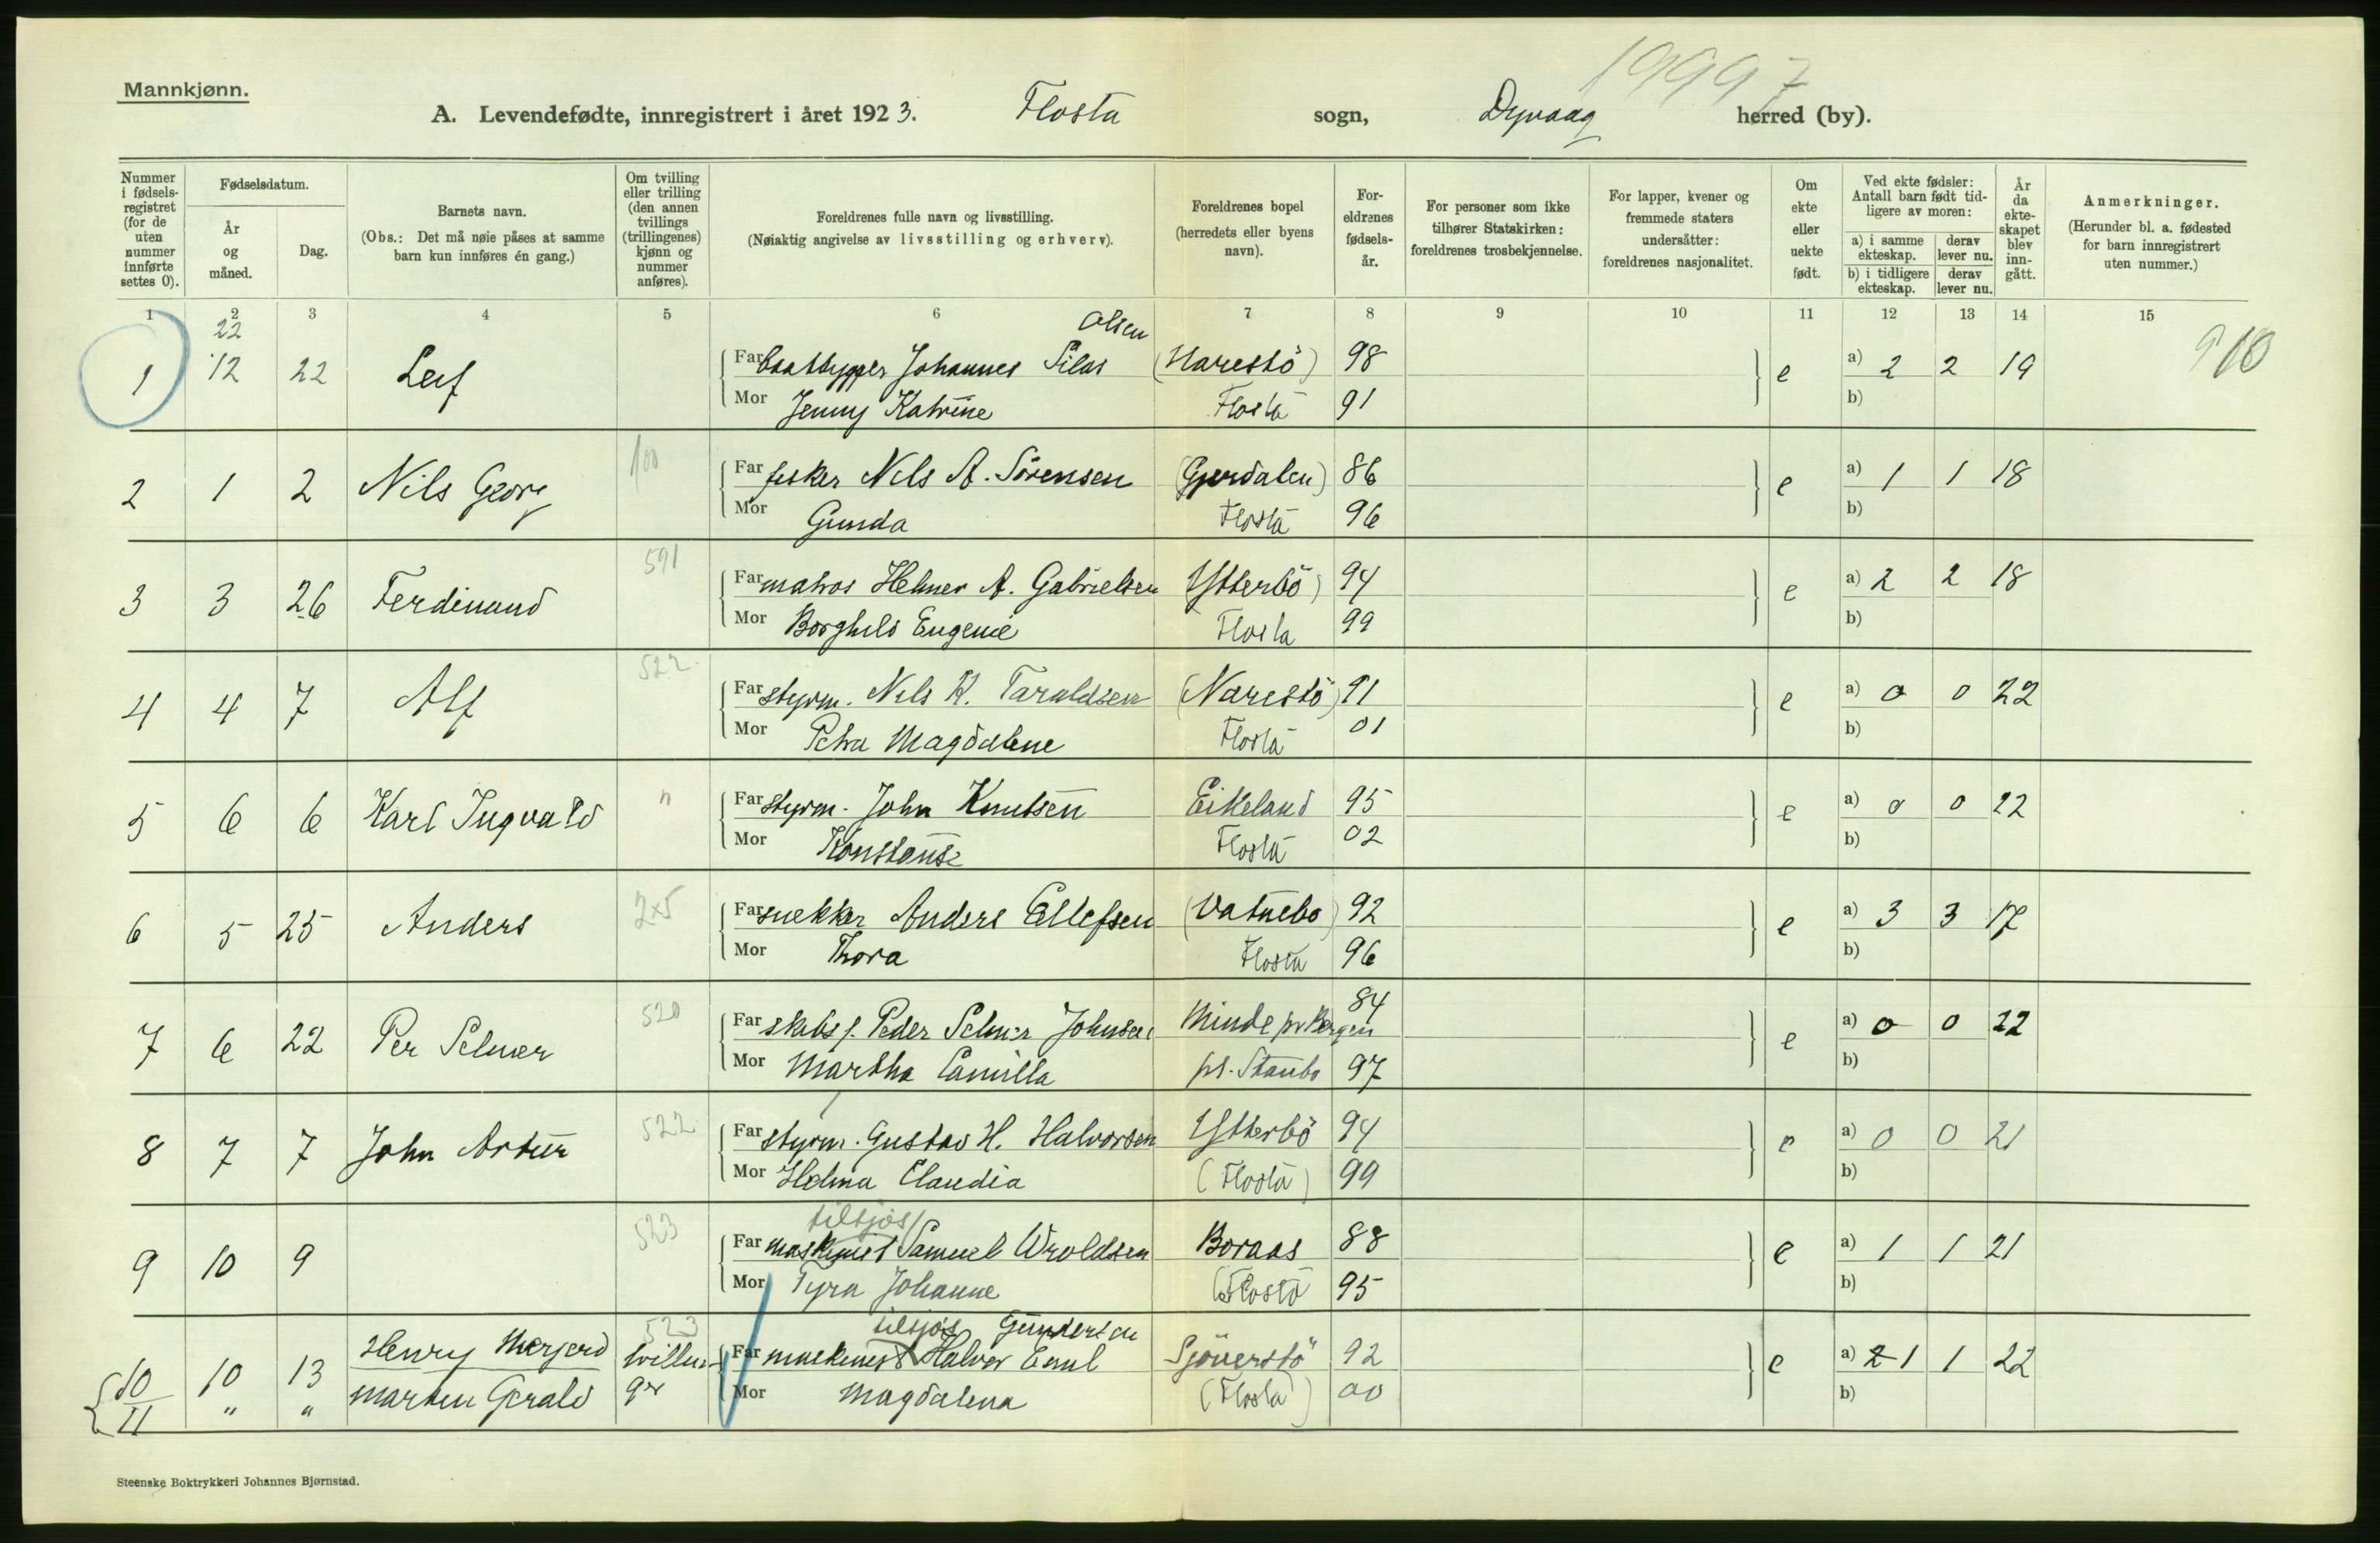 Mannkjønn.
19997
A. Levendefødte, innregistrert i året 1923. Flosta sogn, Dypvaag herred (by).
Nummer i fødselsregistret (for de uten nummer innførte settes 0).
Fødselsdatum.
År og måned.
Dag.
Barnets navn.
(Obs.: Det må nøie påses at samme barn kun innføres én gang.)
Om tvilling eller trilling (den annen tvillings (trillingenes) kjønn og nummer anføres).
Foreldrenes fulle navn og livsstilling.
(Nøiaktig angivelse av livsstilling og erhverv).
Foreldrenes bopel (herredets eller byens navn).
Foreldrenes fødselsår.
For personer som ikke tilhører Statskirken: foreldrenes trosbekjennelse.
For lapper, kvener og fremmede staters undersåtter: foreldrenes nasjonalitet.
Om ekte eller uekte født.
Ved ekte fødsler: Antall barn født tidligere av moren:
a) i samme ekteskap. derav lever nu.
b) i tidligere ekteskap. derav lever nu.
År da ekteskapet blev inngått.
Anmerkninger.
(Herunder bl. a. fødested for barn innregistrert uten nummer.)
1 2 3 4 5 6 7 8 9 10 11 12 13 14 15
22 Olsen
1 12 22 Leif Far baatbygger Johannes Silas (Narestö) 98 e a) 2 2 19
Mor Jenny Katrine Flosta 91 b)
100
2 1 2 Nils Georg Far fisker Nils A. Sörensen (Gjerdalen) 86 e a) 1 1 18
Mor Gunda Flosta 96 b)
591
3 3 26 Ferdinand Far matros Helmer A. Gabrielsen Ytterbö) 94 e a) 2 2 18
Mor Borghild Eugenie Flosta 99 b)
522
4 4 7 Alf Far styrm. Nils K. Taraldsen (Narestö) 91 e a) 0 0 22
Mor Petra Magdalene Flosta 01 b)
"
5 6 6 Karl Ingvald Far styrm. John Knutsen Eikeland 95 e a) 0 0 22
Mor Konstanse Flosta 02 b)
6 5 25 Anders Far snekker Anders Ellefsen (Vatnebo) 92 e a) 3 3 17
Mor Thora Flosta 96 b)
520 84
7 6 22 Per Selmer Far skibsf. Peder Selmer Johnsen Minde pr Bergen e a) 0 0 22
Mor Martha Camilla pt. Staubo 97 b)
522
8 7 7 John Artur Far styrm. Gustav H. Halvorsen Ytterbö 94 e a) 0 0 21
Mor Helma Claudia (Flosta) 99 b)
523 tilsjös
9 10 9 Far maskinist Samuel Wroldsen Boraas 88 e a) 1 1 21
Mor Tyra Johanne (Flosta 95 b)
523 tilsjös Gundersen
10 10 13 Henry tvilling Far maskinist Halvor Emil Sjöverstö 92 e a) 2 1 1 22
11 " " Marten Gerald Mor Magdalena (Flosta) 00 b)
Steenske Boktrykkeri Johannes Bjørnstad.